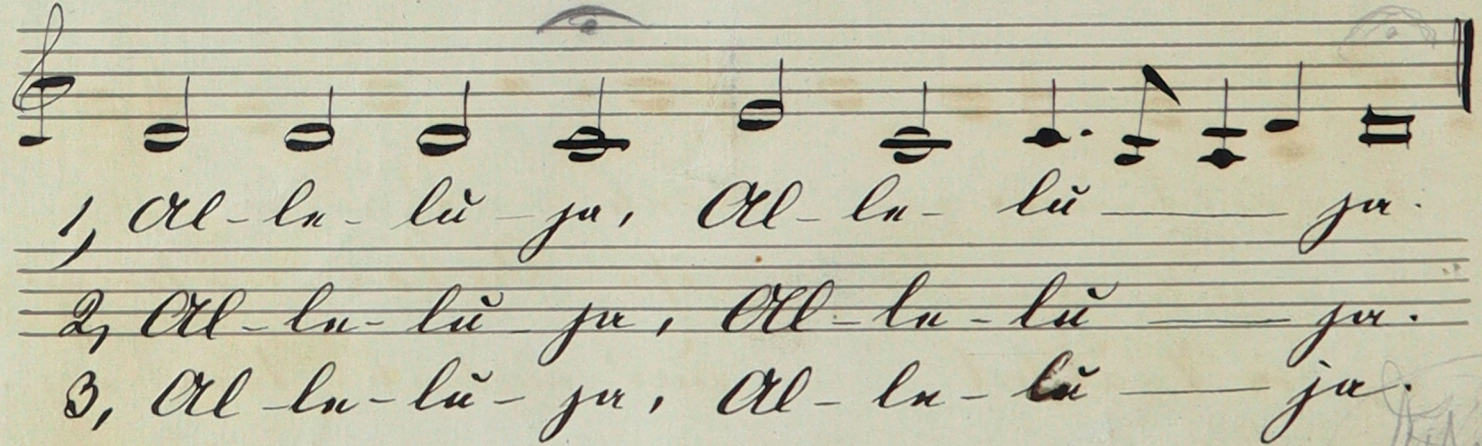 1, Al-le-lŭ-ja, Al-le-lŭ-ja.
2, Al-le-lŭ-ja, Al-le-lŭ-ja.
3, Al-le-lŭ-ja, Al-le-lŭ-ja.